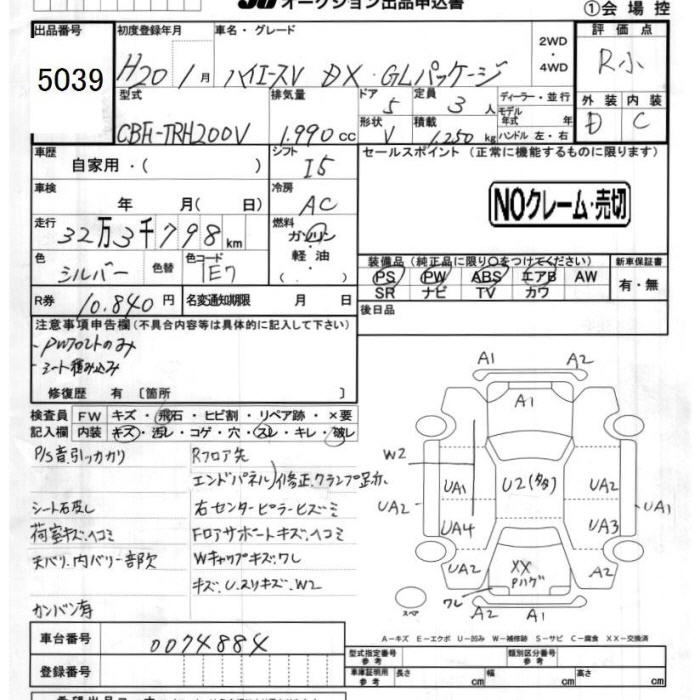 オークション出品申込書
①会場控
出品番号
5039
初度登録年月
H20年 1月
車名・グレード
ハイエースV DX・GLパッケージ
2WD・4WD
評価点
R小
型式
CBF-TRH200V
排気量
1.990cc
ドア
5
定員
3人
ディーラー・並行
モデル年式 年
形状
V
積載
1,250kg
ハンドル 左・右
外装
D
内装
C
車歴
自家用・( )
シフト
I5
セールスポイント(正常に機能するものに限ります)
NOクレーム・売切
車検
年 月( 日)
冷房
AC
走行
32万3千798km
燃料
ガソリン・軽油・( . )
色
シルバー
色替
色コード
1E7
装備品(純正品に限り○をつけてください)
PS PW ABS エアB AW
SR ナビ TV カワ
新車保証書
有・無
R券
10.840円
名変通知期限 月 日
後日品
注意事項申告欄(不具合内容等は具体的に記入して下さい)
・PWフロントのみ
・シート積み込み
修復歴 有〔箇所 〕
検査員記入欄
FW キズ・飛石・ヒビ割・リペア跡・×要
内装 キズ・汚レ・コゲ・穴・スレ・キレ・破レ
P/S音,引ッカカリ
Rフロア先
エンドパネル)修正,クランプ足カ
シート石反し
右センターピラーヒズミ
荷室キズ,ヘコミ
Fロアサポートキズ,ヘコミ
天バリ,内バリ一部欠
Wキャップキズ,ワレ
キズ,U,スリキズ,W2
カンバン有
A1
A2
A1
W2
UA2
UA1
U2(多多)
UA2
UA1
UA4
UA3
UA2
XX
Pハゲ
A2
ワレ
A2
A1
スペア
A-キズ E-エクボ U-凹み W-補修跡 S-サビ C-腐食 XX-交換済
車台番号
0074884
登録番号
型式指定番号
参考
類別区分番号
参考
車庫証明用
参考
長さ cm
幅 cm
高さ cm